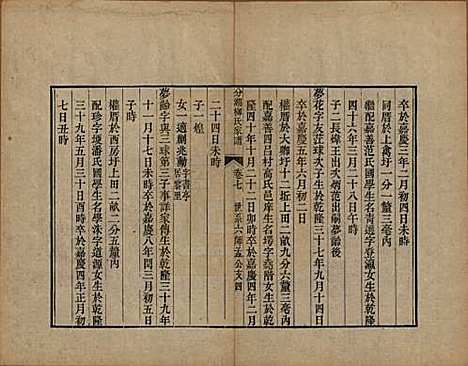 卒於嘉慶三年二月初四日未時
同厝於上禽圩一分一釐三毫內
繼配嘉善范氏國學生名青選字登瀛女生於乾隆
四十六年二月二十八日午時
子二長煒王出次炳范出嗣夢齡後
夢花字友蓮球次子生於乾隆三十七年九月十四日
卒於嘉慶五年六月初二日
權厝於大聯圩十二坵上田二畝九分六釐三毫內
配嘉善四邑村高氏邑庠生名塲字堯階女生於乾
隆四十年十月二十二日卯時卒於嘉慶四年二月
分湖柳氏家譜
卷七
世系六師孟公支四
二十四日未時
子一煌
女一適蒯炎勳字書亭
夢齡字與三球第三子事詳家傳生於乾隆三十九年
十一月十七日未時卒於嘉慶八年閏三月初五日
子時
權厝於西房圩上田二畝二分五釐內
配珍字堘潘氏國學生名學洙字道源女生於乾隆
三十九年五月三十日酉時卒於嘉慶四年正月初
七日丑時